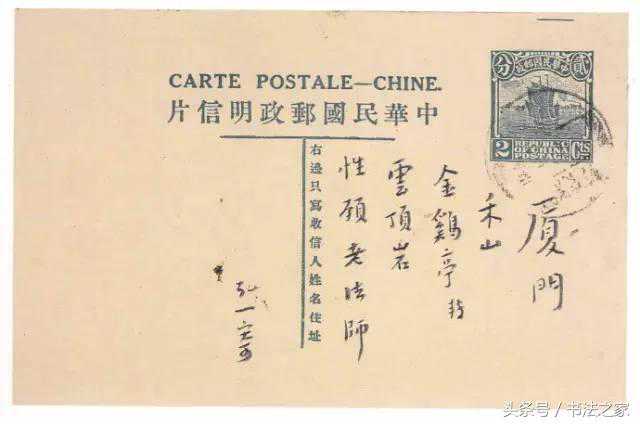 CARTE POSTALE—CHINE.
中華民國郵政明信片
中華民國郵政
貳分
2 Cts.
REPUBLIC
OF CHINA
POSTAGE
厦門
禾山
金鷄亭
雲頂岩
性願老法師
右邊只寫收信人姓名住址
弘一寄
头条号／书法之家